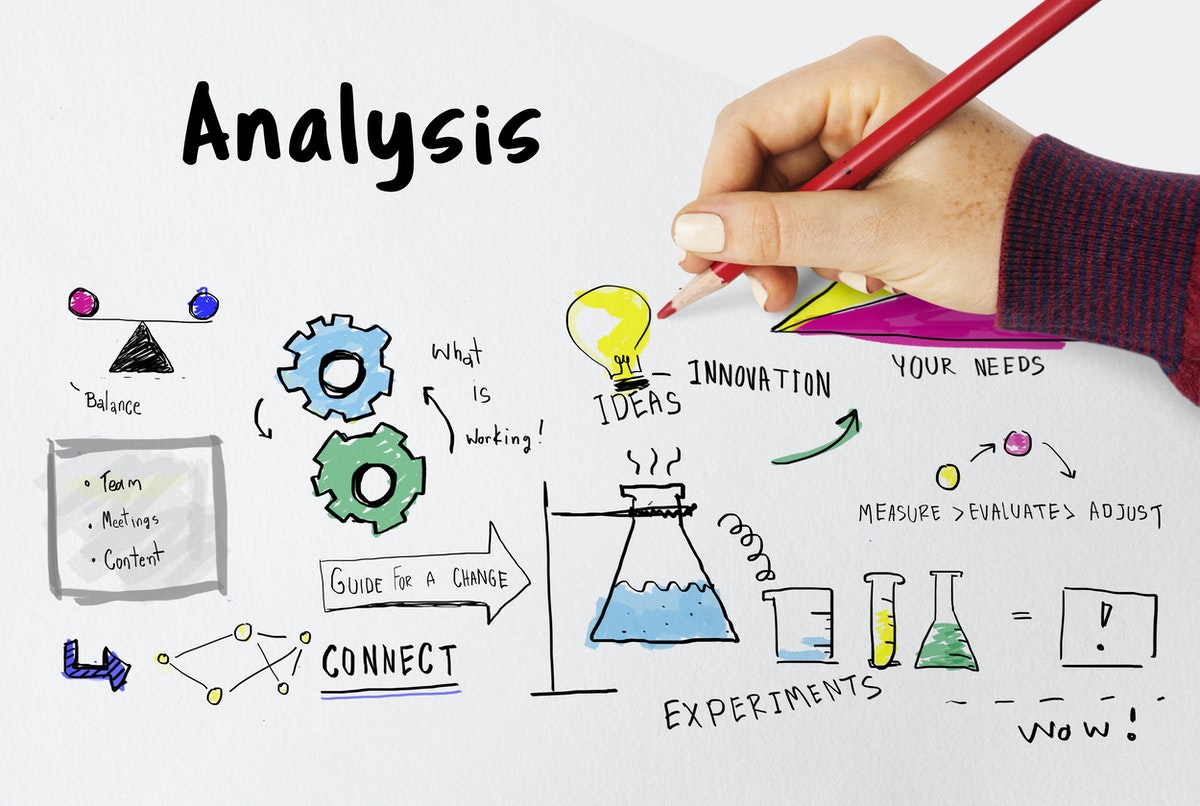 Analysis
Balance
What
is
working!
IDEAS
– INNOVATION
YOUR NEEDS
• Team
• Meetings
• Content
MEASURE > EVALUATE > ADJUST
GUIDE FOR A CHANGE
=
!
CONNECT
EXPERIMENTS
WOW!